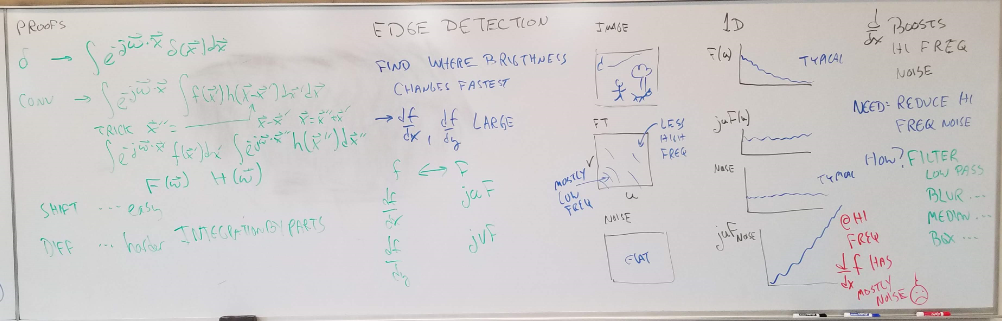 PROOFS
δ → ∫ e^-jω⃗·x⃗ δ(x⃗)dx⃗
CONV → ∫ e^-jω⃗·x⃗ ∫ f(x⃗')h(x⃗-x⃗')dx⃗'dx⃗
TRICK x⃗''= x⃗-x⃗' x⃗=x⃗''+x⃗'
∫ e^-jω⃗·x⃗' f(x⃗')dx⃗' ∫ e^-jω⃗·x⃗'' h(x⃗'')dx⃗''
F(ω⃗) H(ω⃗)
SHIFT ... easy
DIFF ... harder INTEGRATION BY PARTS
EDGE DETECTION
FIND WHERE BRIGTHNESS
CHANGES FASTEST
→ df/dx, df/dy LARGE
f ↔ F
df/dx juF
df/dy jvF
IMAGE
FT
V
U
LESS
HIGH
FREQ
MOSTLY
LOW
FREQ
NOISE
FLAT
1D
F(u)
TYPICAL
juF(u)
NOISE
TYPICAL
juF NOISE
@ HI
FREQ
d/dx f HAS
MOSTLY
NOISE
d/dx BOOSTS
HI FREQ
NOISE
NEED= REDUCE HI
FREQ NOISE
HOW? FILTER
LOW PASS
BLUR ...
MEDIAN ...
BOX ...